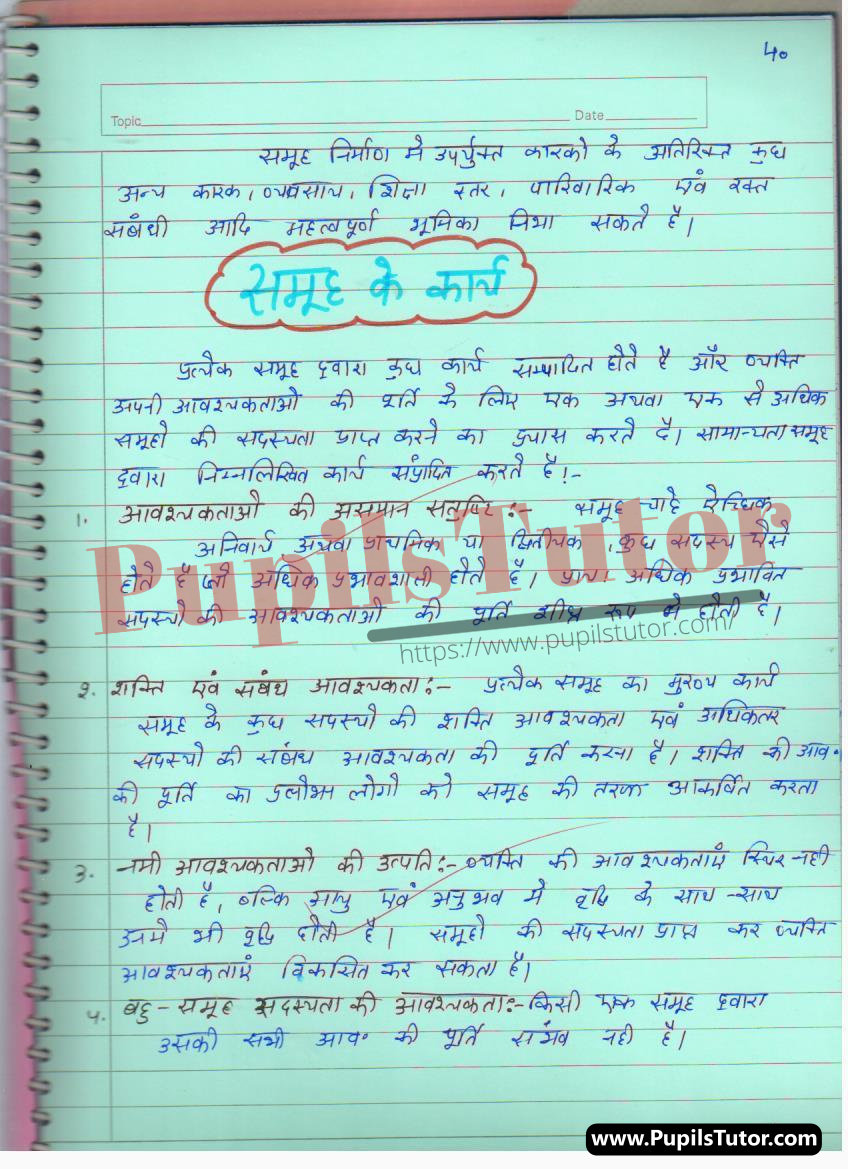 ५०
Topic Date
समूह निर्माण मे उपर्युक्त कारको के अतिरिक्त कुछ
अन्य कारक, व्यवसाय, शिक्षा स्तर, पारिवारिक एवं रक्त
संबंधी आदि महत्वपूर्ण भूमिका निभा सकते है।
समूह के कार्य
प्रत्येक समूह द्वारा कुछ कार्य सम्पादित होते है और व्यक्ति
अपनी आवश्यकताओ की पूर्ति के लिए एक अथवा एक से अधिक
समूहो की सदस्यता प्राप्त करने का प्रयास करते है। सामान्यता समूह
द्वारा निम्नलिखित कार्य संपादित करते है।-
1. आवश्यकताओ की असमान सतुष्टि:- समूह चाहे ऐच्छिक
अनिवार्य अथवा प्राथमिक या द्वितीयक, कुछ सदस्य ऐसे
होते है जो अधिक प्रभावशाली होते है। प्राय: अधिक प्रभावित
सदस्यो की आवश्यकताओ की पूर्ति शीघ्र रूप मे होती है।
PupilsTutor
https://www.pupilstutor.com/
२. शक्ति एवं संबंध आवश्यकता:- प्रत्येक समूह का मुख्य कार्य
समूह के कुछ सदस्यो की शक्ति आवश्यकता एवं अधिकतर
सदस्यो की संबंध आवश्यकता की पूर्ति करना है। शक्ति की आव॰
की पूर्ति का प्रलोभन लोगो को समूह की तरफ आकर्षित करता
है।
३. नयी आवश्यकताओ की उत्पति:- व्यक्ति की आवश्यकताएं स्थिर नही
होती है, बल्कि आयु एवं अनुभव मे वृद्धि के साथ-साथ
उनमे भी वृद्धि होती है। समूहो की सदस्यता प्राप्त कर व्यक्ति
आवश्यकताएं विकसित कर सकता है।
५. बहु-समूह सदस्यता की आवश्यकता:- किसी एक समूह द्वारा
उसकी सभी आव॰ की पूर्ति संभव नही है।
www.PupilsTutor.com